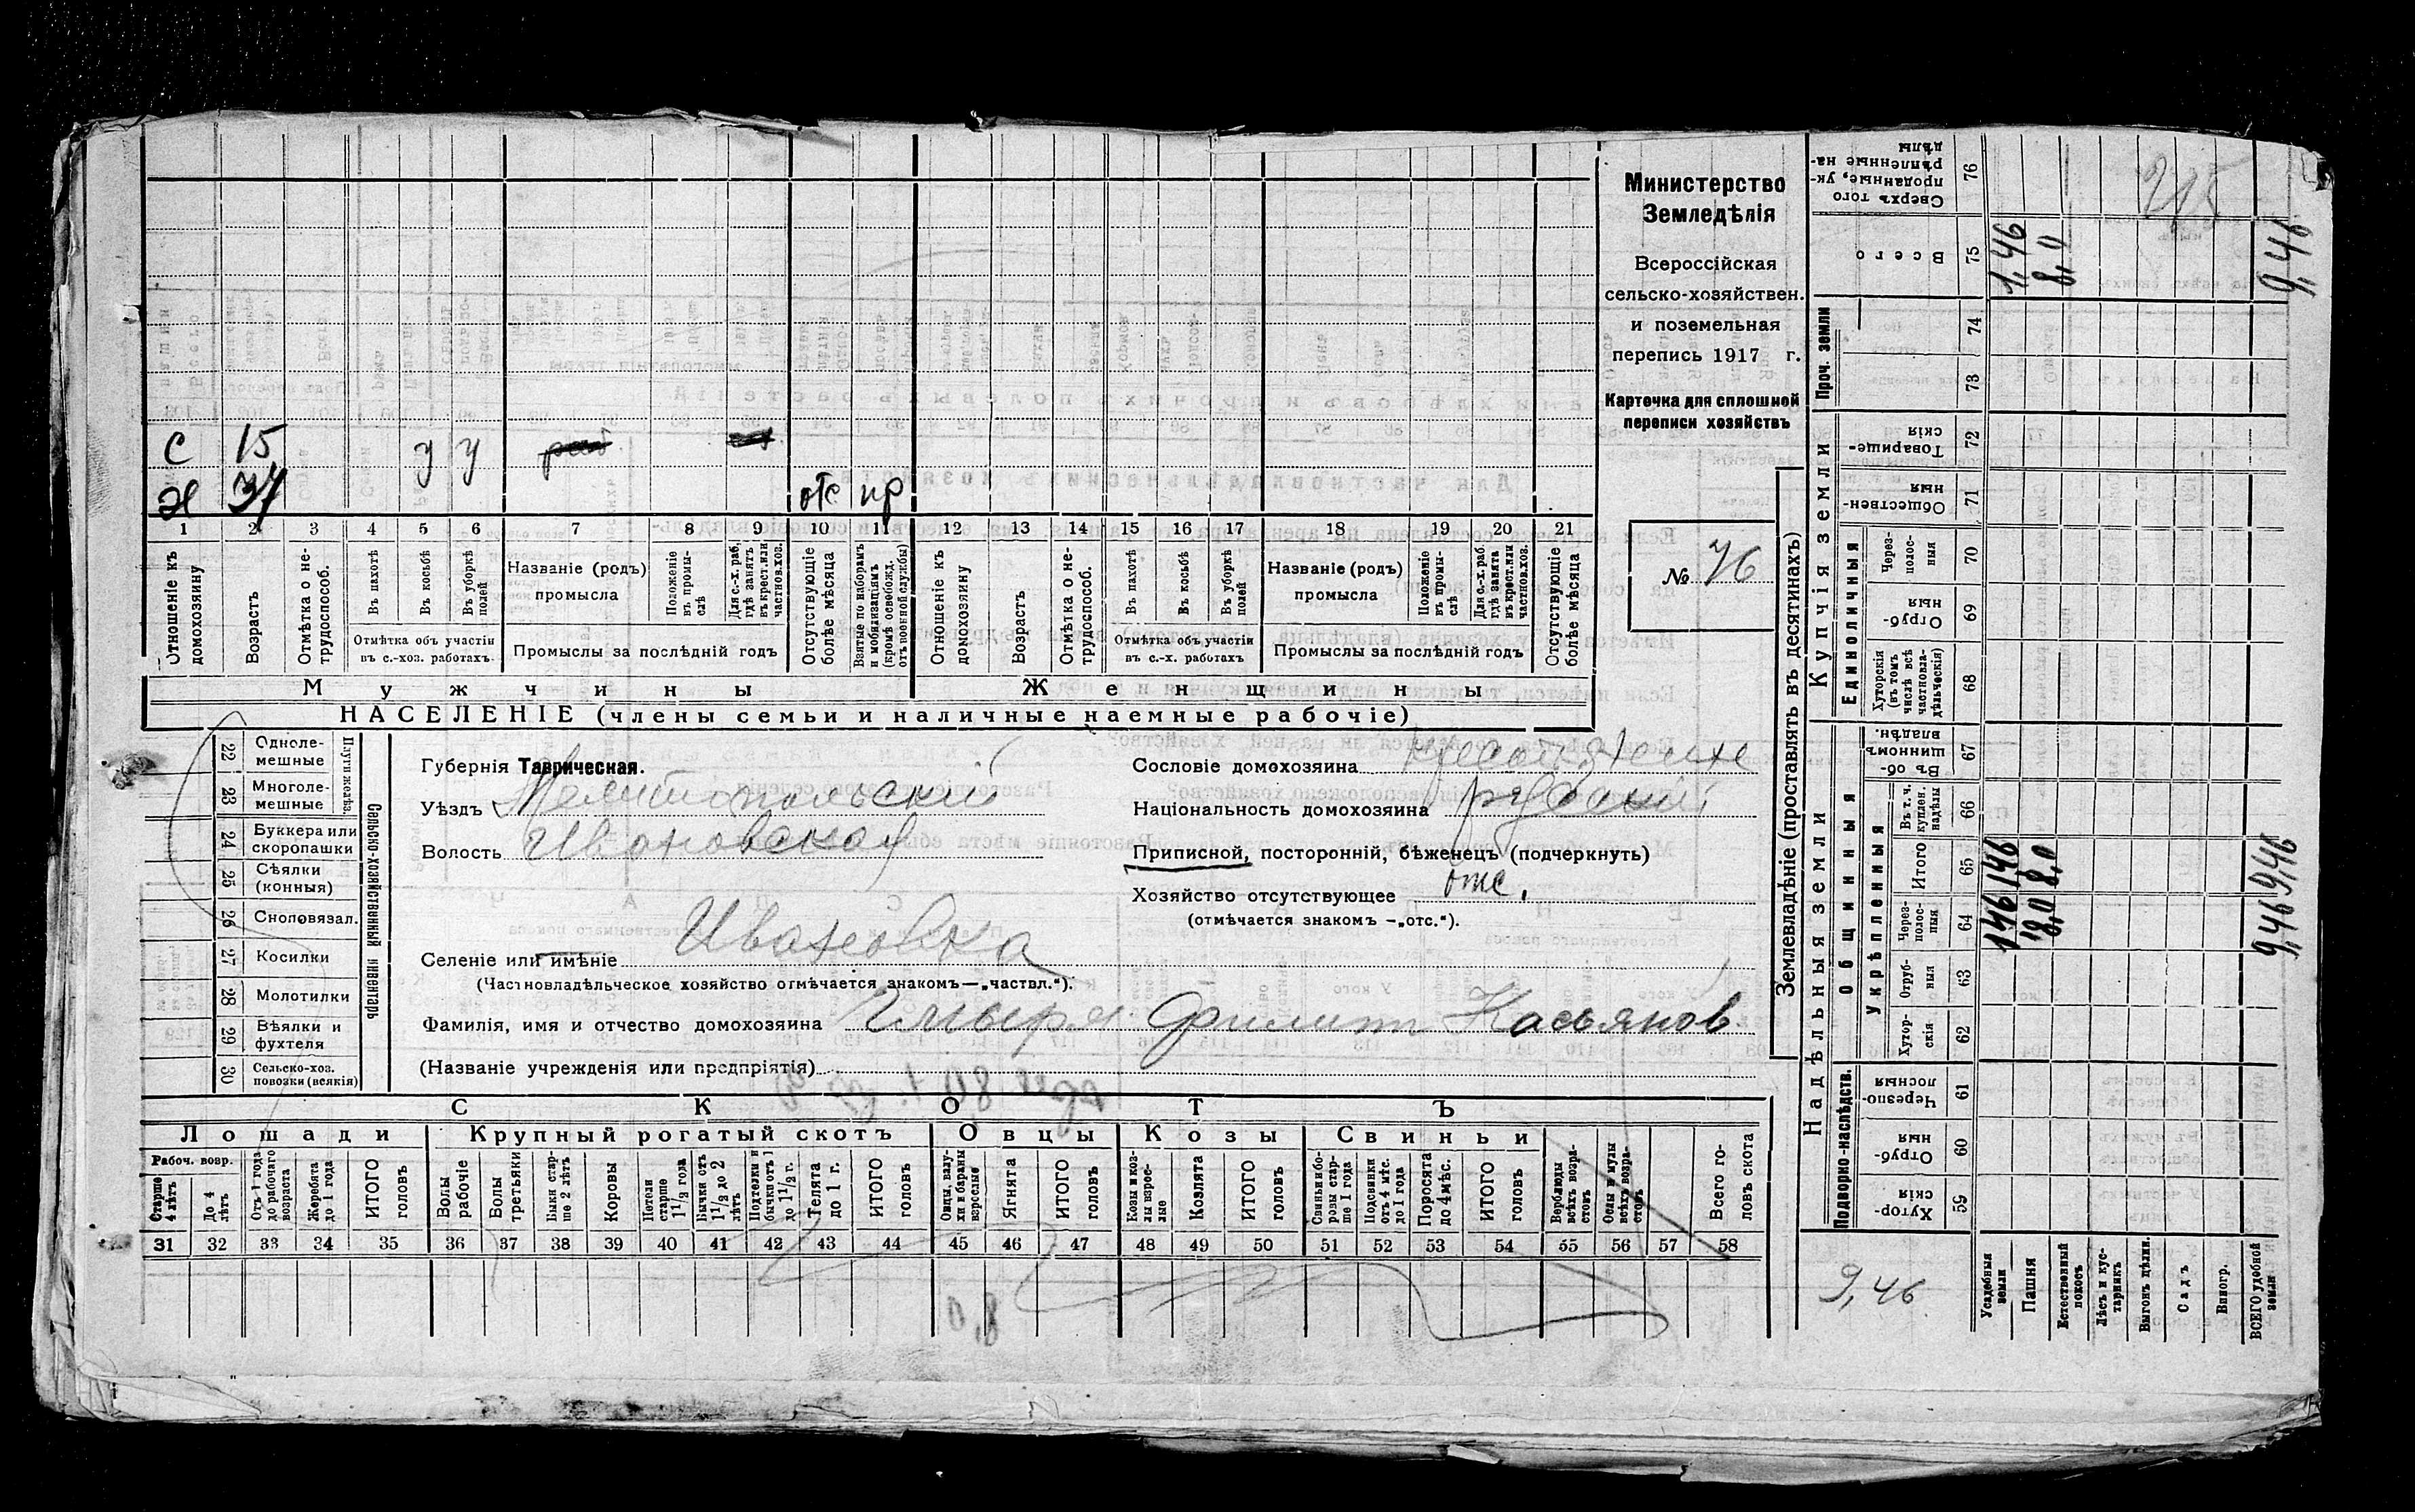 Министерство
Земледѣлія
Всероссійская
сельско-хозяйствен.
и поземельная
перепись 1917 г.
Карточка для сплошной
переписи хозяйствъ
№ 76
С 15 у у
Х 37 отс пр
1 2 3 4 5 6 7 8 9 10 11 12 13 14 15 16 17 18 19 20 21
Отношеніе къ домохозяину
Возрастъ
Отмѣтка о не-трудоспособ.
Въ пахотѣ
Въ косьбѣ
Въ уборкѣ полей
Отмѣтка объ участіи въ с.-хоз. работахъ.
Названіе (родъ) промысла
Положеніе въ промы-слѣ
Для с.-х. раб., гдѣ занятъ въ крест. или частнов. хоз.
Промыслы за послѣдній годъ
Отсутствующіе болѣе мѣсяца
Взятые по наборамъ и мобилизаціямъ (кромѣ освобожд. отъ военной службы)
Отношеніе къ домохозяину
Возрастъ
Отмѣтка о не-трудоспособ.
Въ пахотѣ
Въ косьбѣ
Въ уборкѣ полей
Отмѣтка объ участіи въ с.-х. работахъ
Названіе (родъ) промысла
Положеніе въ промы-слѣ
Для с.-х. раб. гдѣ занята въ крест. или частнов. хоз.
Промыслы за послѣдній годъ
Отсутствующіе болѣе мѣсяца
Мужчины
Женщины
НАСЕЛЕНІЕ (члены семьи и наличные наемные рабочіе)
Сельско-хозяйственный инвентарь
Плуги желѣз.
22 Одноле-мешные
23 Многоле-мешные
24 Буккера или скоропашки
25 Сѣялки (конныя)
26 Сноповязал.
27 Косилки
28 Молотилки
29 Вѣялки и фухтеля
30 Сельско-хоз. повозки (всякія)
Губернія Таврическая.
Уѣздъ Мелитопольский
Волость Ивановская
Сословіе домохозяина
Національность домохозяина русский
Приписной, посторонній, бѣженецъ (подчеркнуть)
Хозяйство отсутствующее отс.
(отмѣчается знакомъ —„отс.“).
Селеніе или имѣніе Ивановка
(Частновладѣльческое хозяйство отмѣчается знакомъ—„частвл.“).
Фамилія, имя и отчество домохозяина Чмыря Филипп Касьянов
(Названіе учрежденія или предпріятія)
СКОТЪ
Лошади
Крупный рогатый скотъ
Овцы
Козы
Свиньи
Рабоч. возр.
Старше 4 лѣтъ
До 4 лѣтъ
Отъ 1 года до рабочаго возраста
Жеребята до 1 года
ИТОГО головъ
Волы рабочіе
Волы третьяки
Быки стар-ше 2 лѣтъ
Коровы
Нетели старше 1½ года
Бычки отъ 1½ до 2 лѣтъ
Подтелки и бычки отъ 1 до 1½ г.
Телята до 1 г.
ИТОГО головъ
Овцы, валу-хи и бараны взрослые
Ягнята
ИТОГО головъ
Козы и коз-лы взрос-лые
Козлята
ИТОГО головъ
Свиньи и бо-ровы стар-ше 1 года
Подсвинки отъ 4 мѣс. до 1 года
Поросята до 4 мѣс.
ИТОГО головъ
Верблюды всѣхъ возра-стовъ
Ослы и мулы всѣхъ возра-стовъ
Всего го-ловъ скота
31 32 33 34 35 36 37 38 39 40 41 42 43 44 45 46 47 48 49 50 51 52 53 54 55 56 57 58
Землевладѣніе (проставлять въ десятинахъ)
Надѣльныя земли
Купчія земли
Проч. земли
Подворно-наслѣдств.
Общинныя
Укрѣпленныя
Единоличныя
Хутор-скія 59
Отруб-ныя 60
Черезпо-лосныя 61
Хутор-скія 62
Отруб-ныя 63
Через-полос-ныя 64
Итого 65
Въ т. ч. куплен. надѣлы 66
Въ об-шинномъ владѣн. 67
Хуторскія (въ томъ числѣ всѣ частновла-дѣльческія) 68
Отруб-ныя 69
Через-полос-ныя 70
Обществен-ныя 71
Товарище-скія 72
73
74
Всего 75
Сверхъ того проданные, ук-рѣпленные на-дѣлы 76
Усадебныя земли 1,46 1,46 1,46
Пашня 8,0 8,0 8,0
Естественный покосъ
Лѣсъ и кус-тарникъ
Выгонъ цѣлин.
Садъ
Виногр.
ВСЕГО удобной земли 9,46 9,46 9,46
9,46
215